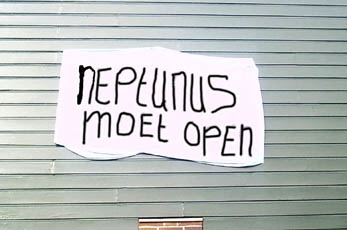 NEPTUNUS
MOET OPEN